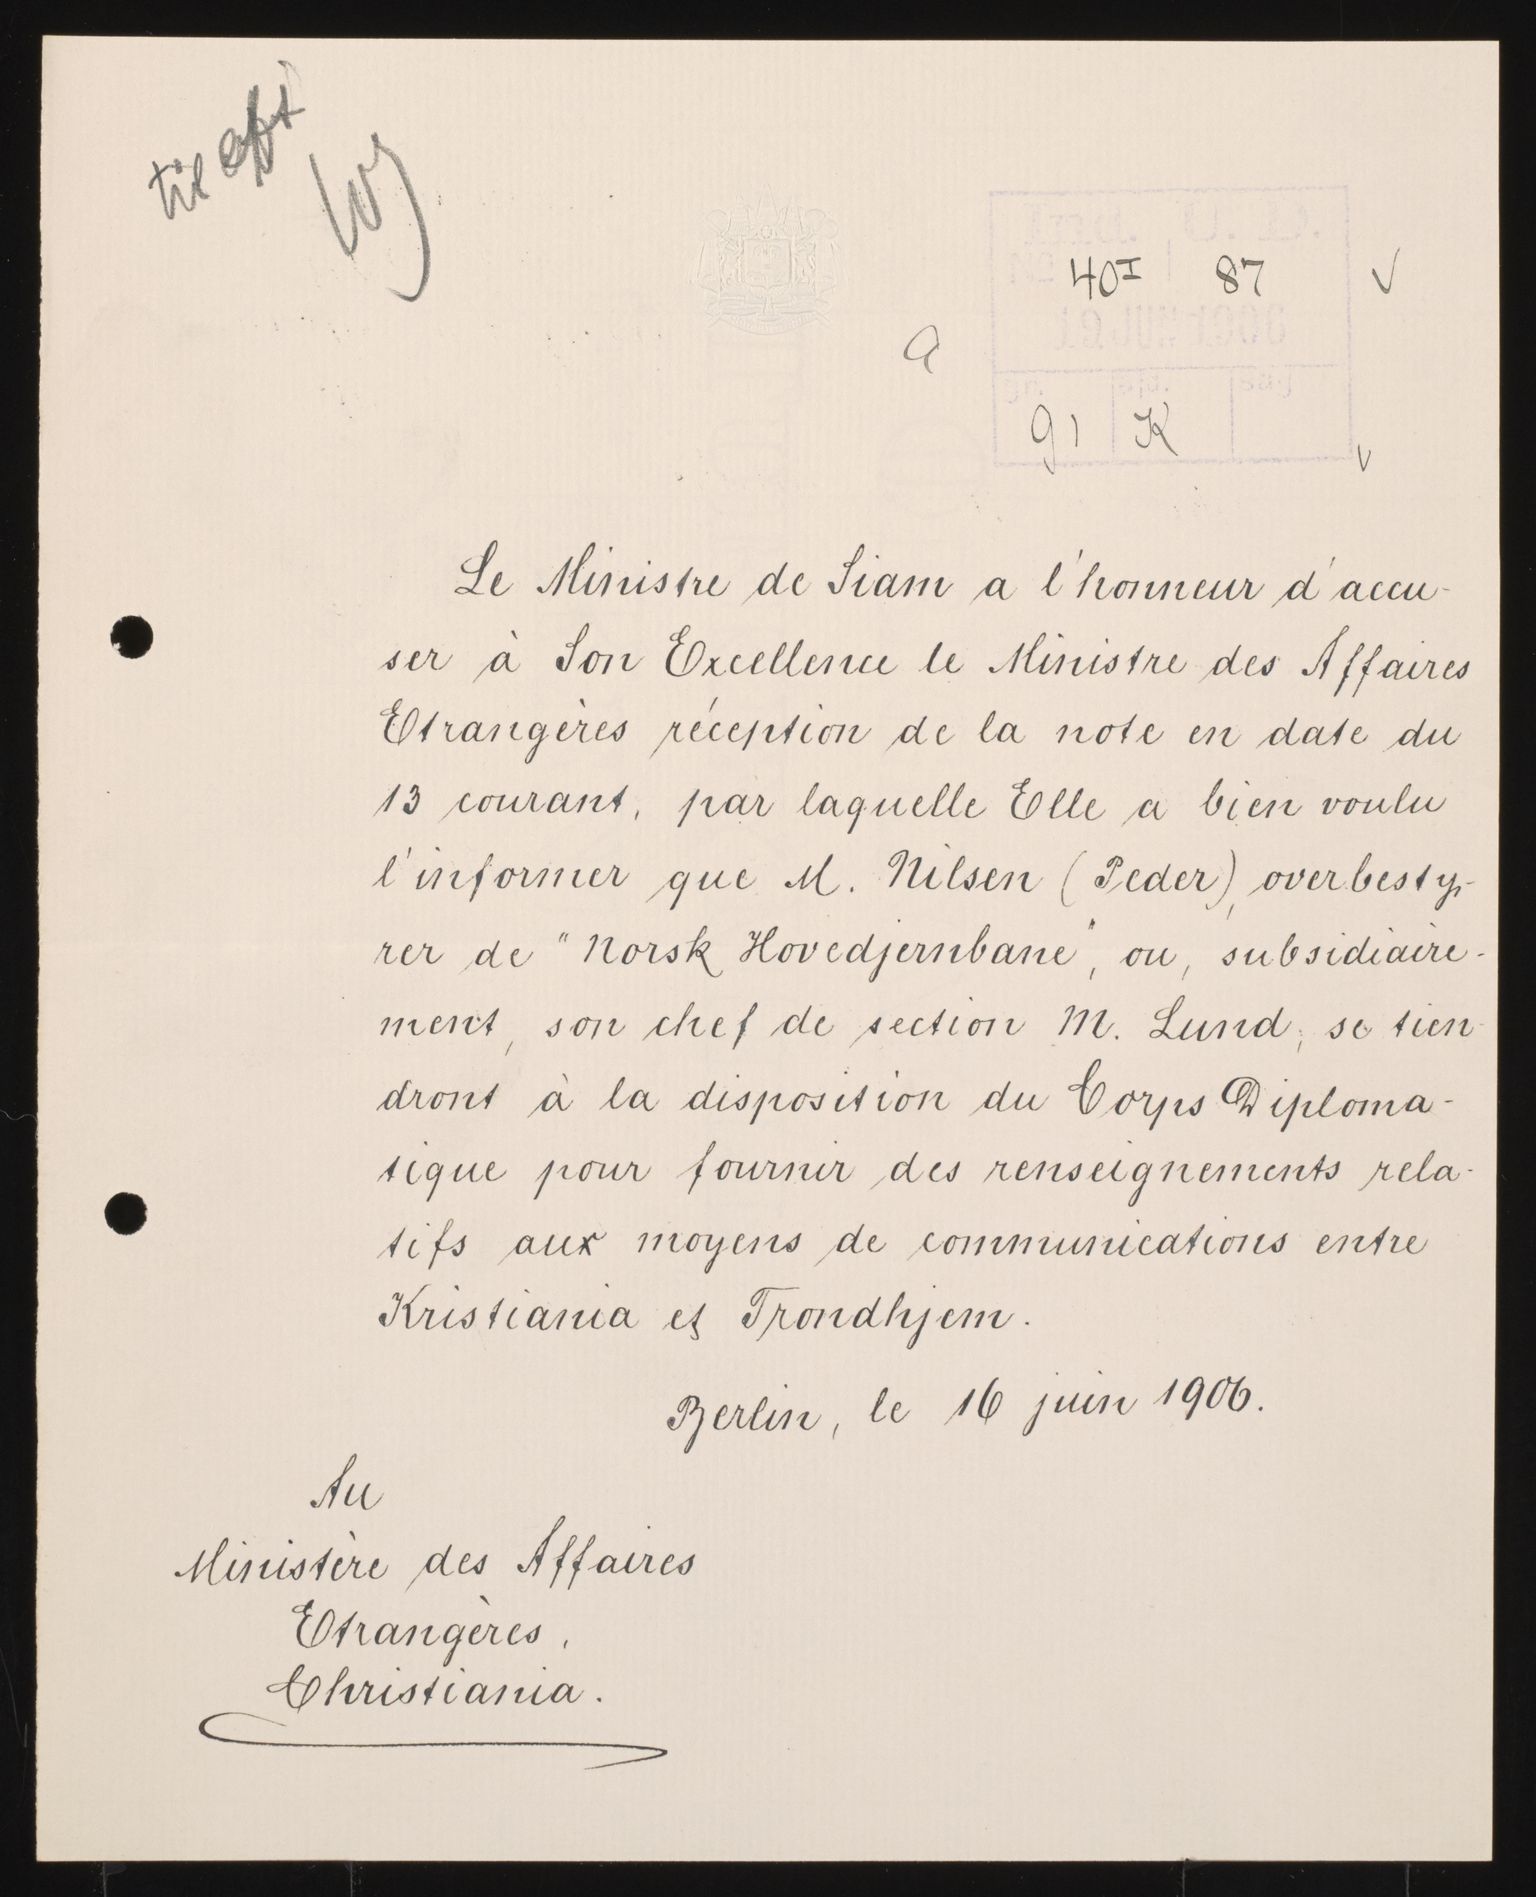 til
40 I 87
a
91 K
Le Ministre de Siam a l'honneur d'accu-
ser à Son Excellence le Ministre des Affaires
Etrangères réception de la note en date du
13 courant, par laquelle Elle a bien voulu
l'informer que M. Nilsen (Peder), overbesty-
rer de "Norsk Hovedjernbane", ou, subsidiaire-
ment, son chef de section M. Lund, se tien-
dront à la disposition du Corps Diploma-
tique pour fournir des renseignements rela-
tifs aux moyens de communications entre
Kristiania et Trondhjem.
Berlin, le 16 juin 1906.
Au
Ministère des Affaires
Etrangères,
Christiania.